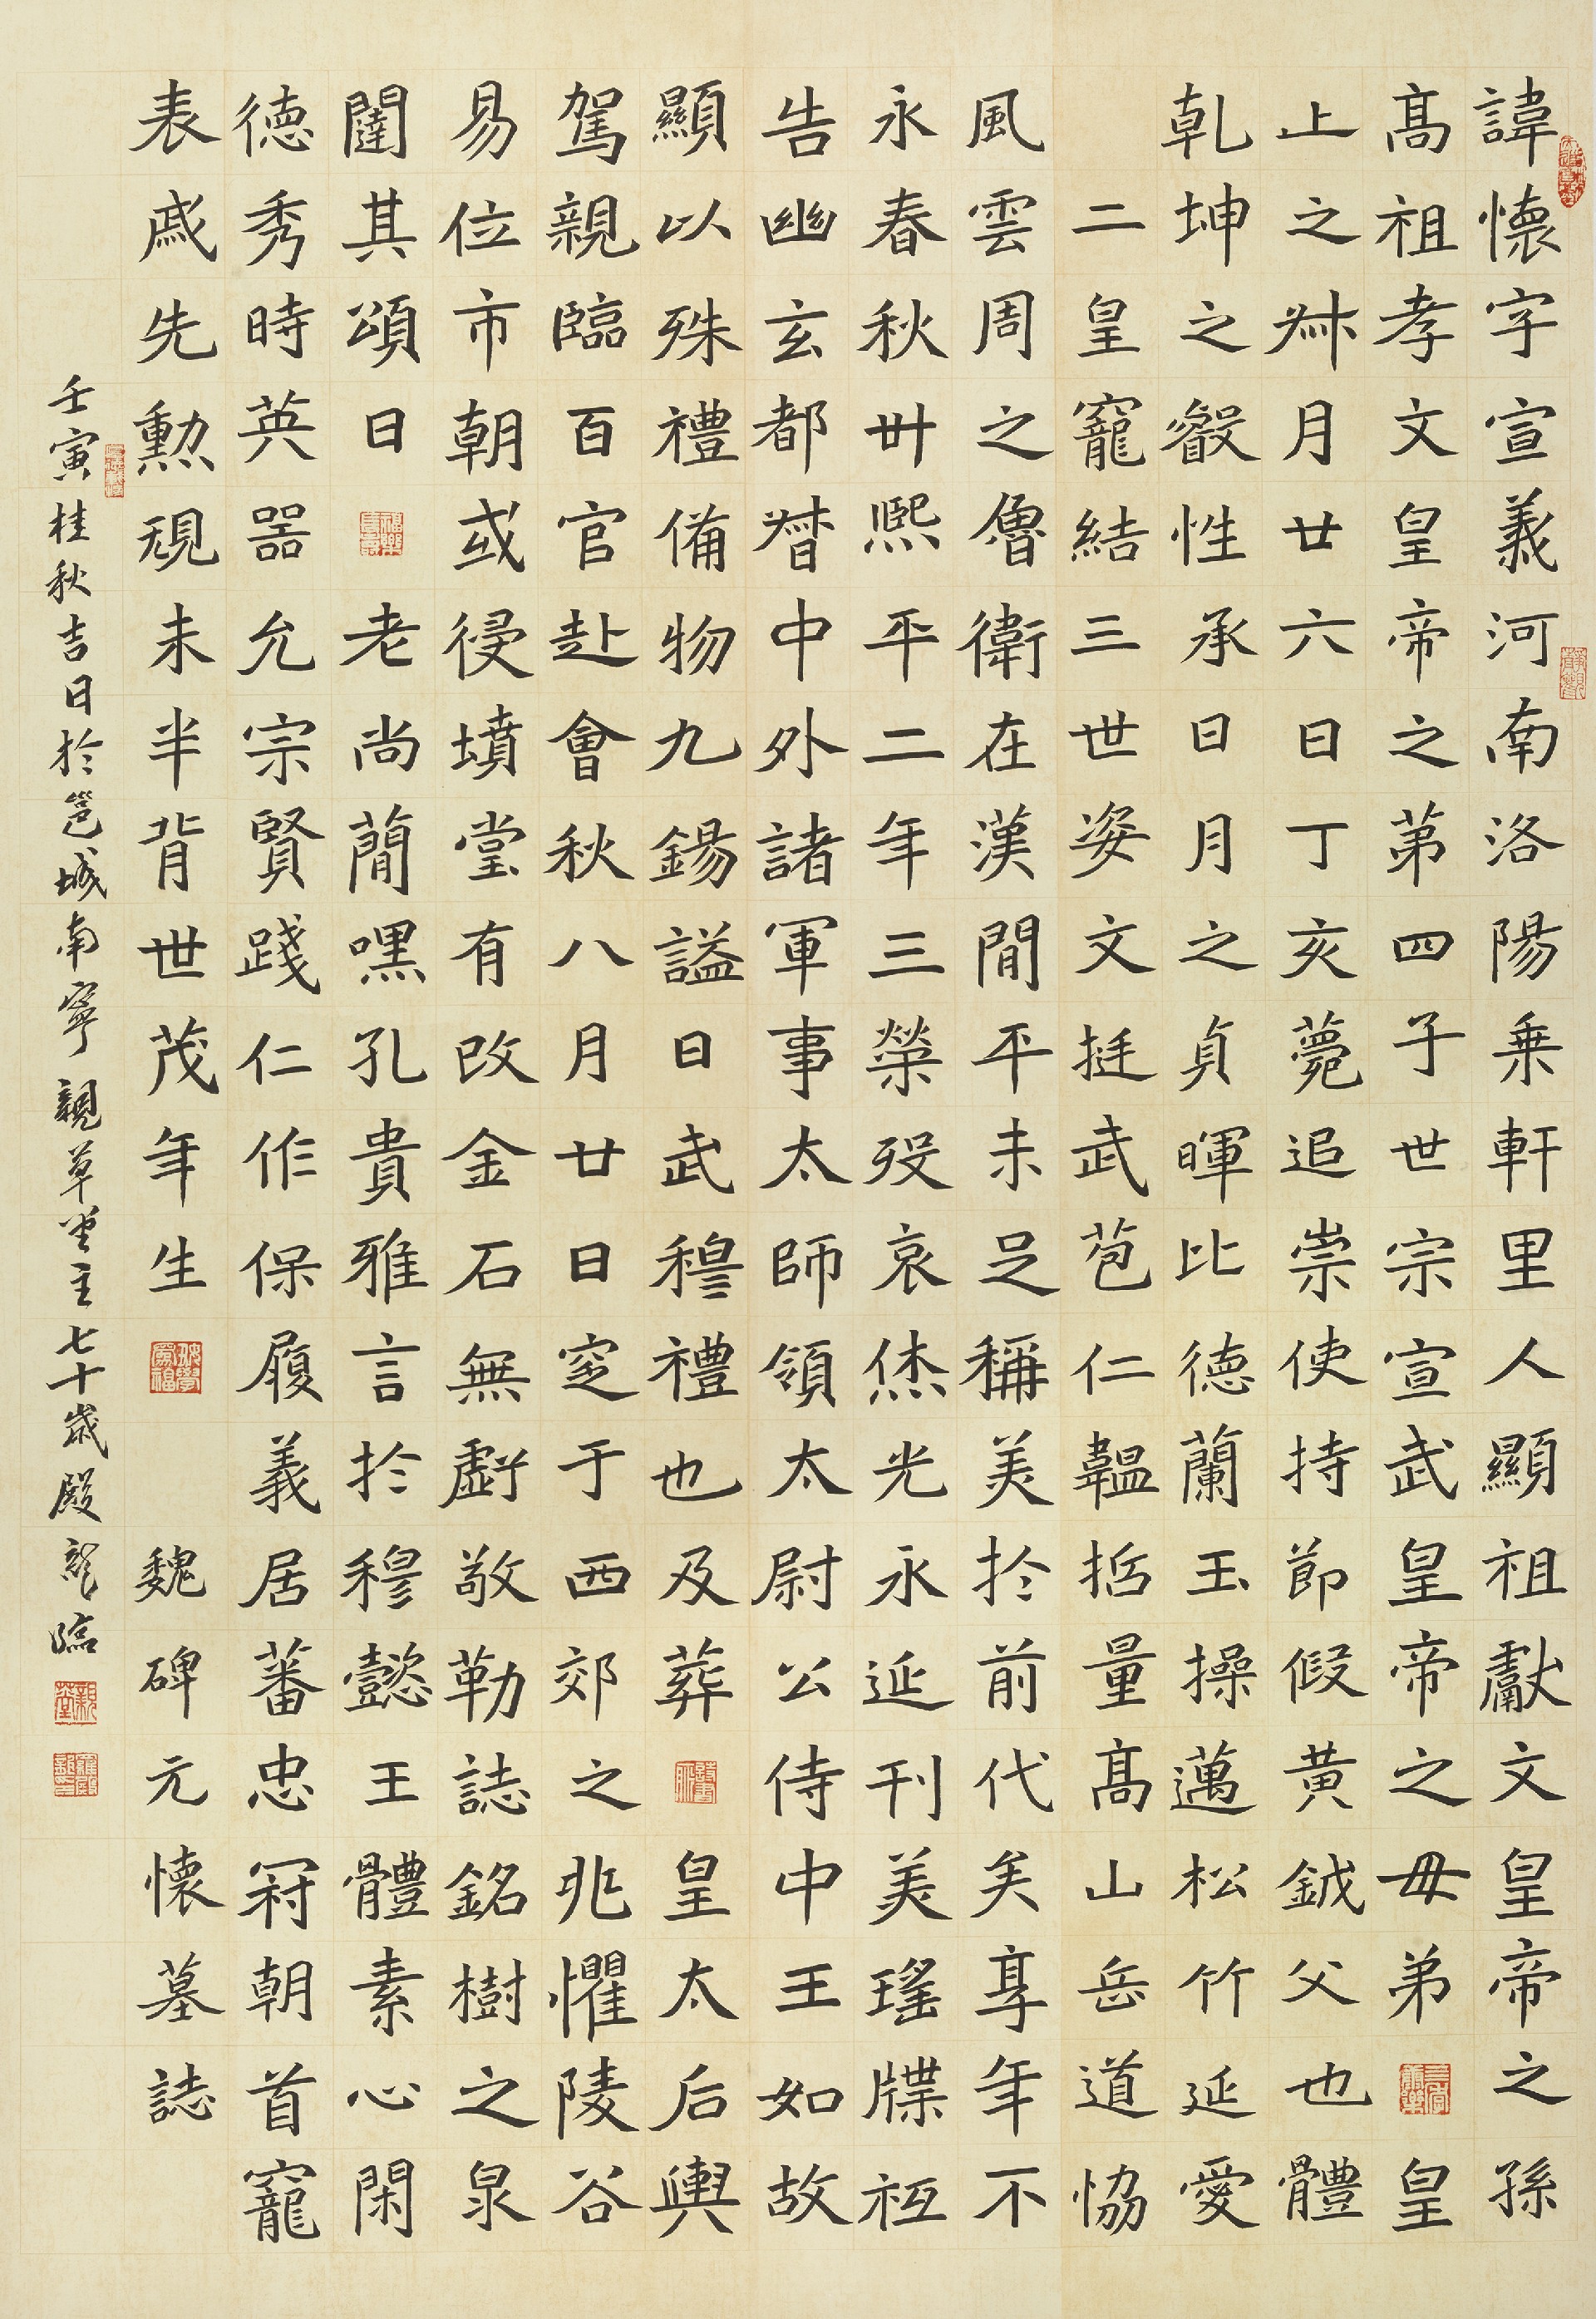 諱懷字宣義河南洛陽乗軒里人顯祖獻文皇帝之孫
髙祖孝文皇帝之第四子世宗宣武皇帝之母弟皇
上之叔月廿六日丁亥薨追崇使持節假黄鉞父也體
乹坤之叡性承日月之貞暉比德蘭玉操邁松竹延愛
二皇寵結三世姿文挺武苞仁韞括量髙山岳道協
風雲周之魯衛在漢閒平未足稱美扵前代矣享年不
永春秋卅熙平二年三棨殁哀恷光永延刊美瑤牒袛
告幽玄都督中外諸軍事太師領太尉公侍中王如故
顯以殊禮備物九錫謚曰武穆禮也及葬皇太后輿
駕親臨百官赴會秋八月廿日窆于西郊之兆懼陵谷
易位市朝或侵墳堂有改金石無虧敬勒誌銘樹之泉
闥其頌曰老尚蕳嘿孔貴雅言扵穆懿王體素心閑
徳秀時英器允宗賢踐仁作保履義居蕃忠冠朝首寵
表戚先勲現未半背世茂年生魏碑元懷墓誌
壬寅桂秋吉日扵邕城南寧親草堂主七十歲殿龍臨